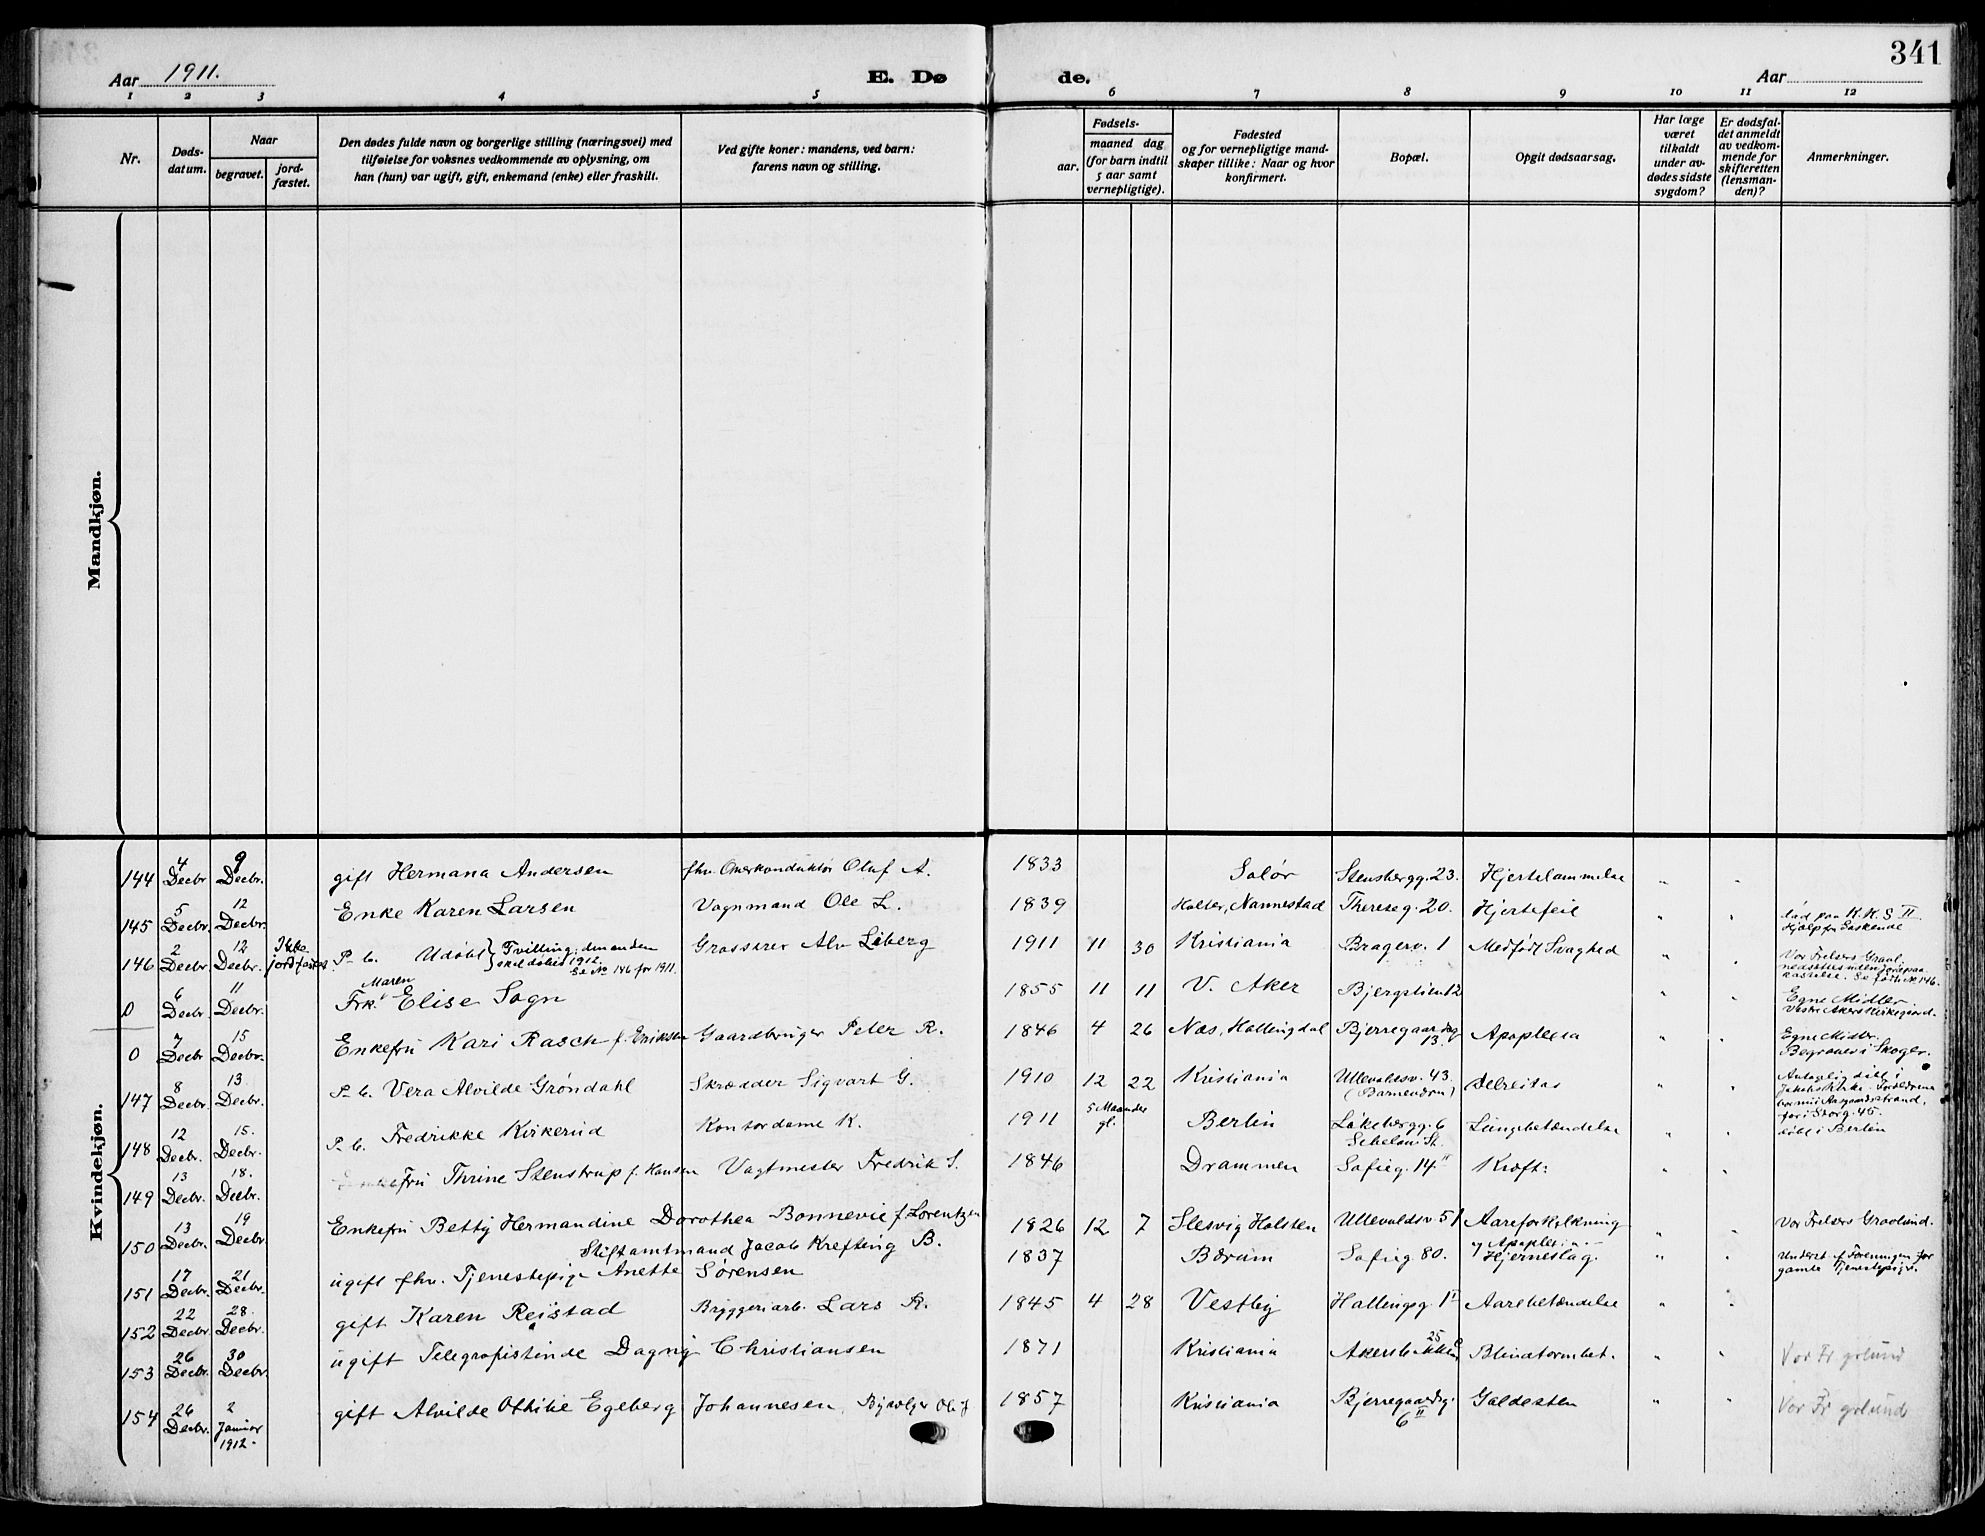 341
Aar 1911.
E. Dø de.
Aar
1 2 3 4 5 6 7 8 9 10 11 12
Nr.
Døds-
datum.
Naar
begravet.
jord-
fæstet.
Den dødes fulde navn og borgerlige stilling (næringsvei) med
tilføielse for voksnes vedkommende av oplysning, om
han (hun) var ugift, gift, enkemand (enke) eller fraskilt.
Ved gifte koner: mandens, ved barn:
farens navn og stilling.
Fødsels-
aar.
maaned dag
(for barn indtil
5 aar samt
vernepligtige).
Fødested
og for vernepligtige mand-
skaper tillike: Naar og hvor
konfirmert.
Bopæl.
Opgit dødsaarsag.
Har læge
været
tilkaldt
under av-
dødes sidste
sygdom?
Er dødsfal-
det anmeldt
av vedkom-
mende for
skifteretten
(lensman-
den)?
Anmerkninger.
Mandkjøn.
Kvindekjøn.
144 4 Decbr. 9 Decbr. gift Hermana Andersen fhv. Overkonduktør Oluf A. 1833 Solør Stensbergg. 23. Hjertelammelse " "
145 5 Decbr. 12 Decbr. Enke Karen Larsen Vognmand Ole L. 1839 Holter, Nannestad Thereseg. 20. Hjertefeil " "
146 2 Decbr. 12 Decbr. Ikke jordfæstet P. b. Udøbt Tvilling, den anden Grosserer Alv Liberg 1911 11 30 Kristiania Bragesv. 1 Medfødt Svaghed " Vor Frelsers Gravl.
Se No 146 for 1911.
0 6 Decbr. 11 Decbr. Frk. Maren Elise Sogn 1855 11 11 V. Aker Bjergstien 12 " " Egne Midler.
Vestre Akers Kirkegaard.
0 7 Decbr. 15 Decbr. Enkefru Kari Rasch f. Eriksen Gaardbruger Peter R. 1846 4 26 Næs, Hallingdal Bjerregaardsg 13. Apoplexia " " Egne Midler.
Begraves i Skoger.
147 8 Decbr. 13 Decbr. P. b. Vera Alvilde Grøndahl Skrædder Sigvart G. 1910 12 22 Kristiania Ullevoldsv. 43. " "
148 12 Decbr. 15. Decbr. P. b. Fredrikke Kirkerud Kontordame K. 1911 5 Maaneder gl. Berlin Lungebetændelse " " døbt i Berlin
149 13 Decbr. 18. Decbr. Enkefru Thrine Stenstrup f. Hansen Vagtmester Fredrik S. 1846 Drammen Sofieg. 14 II Kræft: " "
150 13 Decbr. 19 Decbr. Enkefru Betty Hermandine Dorothea Bonnevie f. Lorentzen 1826 12 7 Slesvig Holsten Ullevoldsv 51 Aareforkalkning " " Vor Frelsers Gravlund.
Stiftamtmand Jacob Krefting B.
151 17 Decbr. 21 Decbr. ugift fhv. Tjenestepige Anette Sørensen 1837 Bærum Sofieg 80. Hjerneslag. " " Underst. af Foreningen for
gamle Tjenestepiger.
152 22 Decbr. 28. Decbr. gift Karen Reistad Bryggeriarb. Lars R. 1845 4 28 Vestby Hallingsg 1 II Aarebetændelse " "
153 26 Decbr. 30 Decbr. ugift Telegrafistinde Dagny Christiansen 1871 Kristiania Akersbakken 25 Blindtarmbet. " " Vor Fr grlund
154 26 Decbr. 2 Januar 1912. gift Alvilde Othilie Egeberg Johannesen 1857 Kristiania Bjerregaardsg. 6 II Galdesten " " Vor Fr grlund